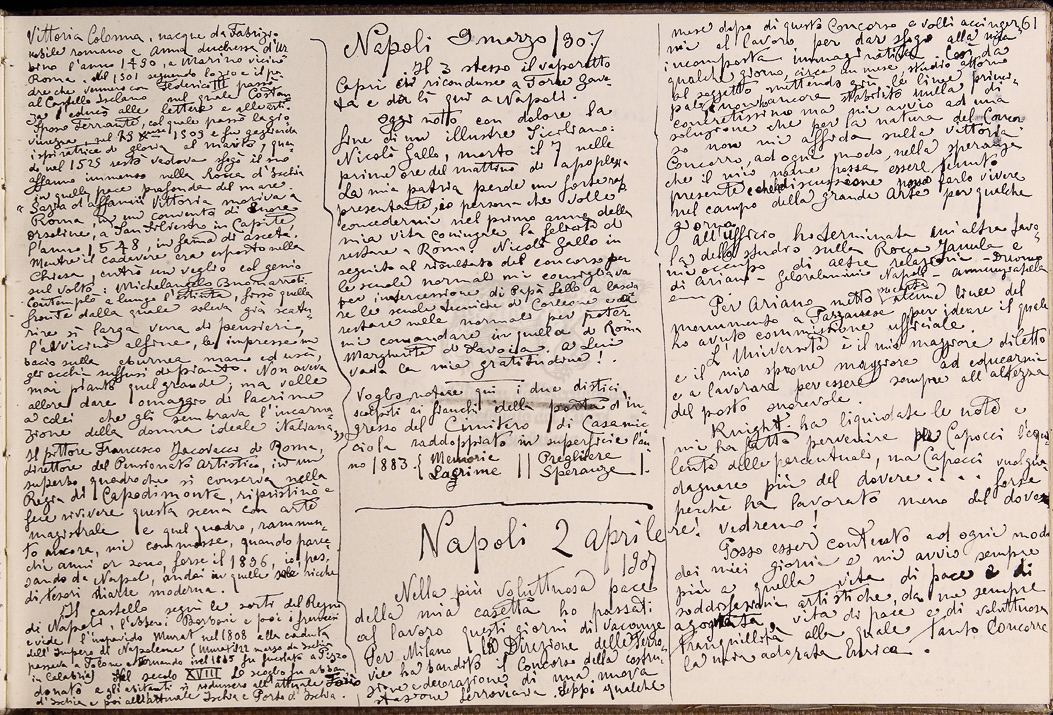 Vittoria Colonna, nacque da Fabrizio
nobile romano e anna duchessa d'Ur
bino l'anno 1490, a Marino vicino
Roma. Nel 1501 segundo lo zio e il pa
dre che vennero con Federico III passò
al Castello Isclano sul quale Costan
za l'educò alle lettere e alle arti
Sposò Ferrante, col quale passò la gio
vinezza nel 1509 e fu gagliarda
ispiratrice di gloria al marito, quan
do nel 1525 restò vedova sfogò il suo
affanno immenso nella Rocca d'Ischia
in quella pace profonda del mare.
Carga d'affanni Vittoria morivasi a
Roma in un convento di Suore
Orseline, a San Silvestro in Capite
l'anno 1548, in fama di asceta.
Mentre il cadavere era esposto nella
Chiesa, entrò un veglio col genio
sul volto: Michelangelo Buonarroti.
Contemplò a lungo l'estinta, fissò quella
fronte dalla quale soleva già scatu
rire sì larga vena di pensieri,
l'avvicinò alfine, le impresse un
bacio sulla eburnea mano ed uscì,
gli occhi suffusi di pianto. Non aveva
mai pianto quel grande; ma volle
allora dare omaggio di lacrime
a colei che gli sembrava l'incarna
zione della donna ideale italiana,,
Il pittore Francesco Jacovacci di Roma,
direttore del Pensionato Artistico, in un
superbo quadro che si conserva nella
Regia di Capodimonte, ripristinò e
fece rivivere questa scena con arte
magistrale e quel quadro, rammen
to ancora, mi commosse, quando parec
chi anni or sono, forse il 1896, io, pas
sando da Napoli, andai in quelle sale ricche
di tesori d'arte moderna.
Il castello seguì le sorti del Regno
di Napoli, l'ebbero i Borboni e poi i francesi
e vide l'impavido Murat nel 1808 alla caduta
dell'Impero di Napoleone (Murat 22 marzo da Ischia
passava a Tolone e tornando nel 1815 fu fucilato a Pizzo
in Calabria) Nel secolo XVIII lo scoglio fu abban
donato e gli abitanti si ridussero all'attuale
d'Ischia e poi all'attuale Ischia e Porto d'Ischia.
Napoli 9 marzo 1907
Il 3 stesso il vaporetto
Capri ci ricondusse a Torre Gave
ta e da lì qui a Napoli.
Oggi noto con dolore la
fine di un illustre Siciliano:
Nicolò Gallo, morto il 7 nelle
prime ore del mattino di apoplessia
La mia patria perde un forte rap
presentante, io persona che volle
concedermi nel primo anno della
mia vita coniugale la felicità di
restare a Roma Nicolò Gallo in
seguito al risultato del concorso per
le scuole normali mi consigliava
per intercessione di Papà Lello a lascia
re le scuole tecniche di Corleone e di
restare nelle normali per poter
mi comandare in quella di Roma
Margherita di Savoia. A Lui
vada la mia gratitudine!
Voglio notare qui i due distici
scolpiti ai fianchi della porta d'in
gresso del Cimitero di Casamic
ciola raddoppiato in superficie l'an
no 1883. { Memorie || Preghiere
Lagrime || Speranze |.
Napoli 2 aprile
1907
Nella più voluttuosa pace
della mia casetta ho passati
al lavoro questi giorni di vacanze
Per Milano la Direzione delle Ferro
vie ha bandito il Concorso della costru
zione e decorazione di una nuova
stazione ferroviaria. Seppi qualche
61
mese dopo di questo Concorso e volli accinger
mi al lavoro per dar sfogo alla mia
incomposta immaginativa. Così da
qualche giorno, circa un mese studio attorno
al soggetto mettendo giù le linee princi
pali, non ancora stabilito nulla di
concretissimo ma mi avvio ad una
soluzione che per la natura del Concor
so non mi affida sulla vittoria
Concorro, ad ogni modo, nella speranza
che il mio nome possa essere tenuto
presente e che la discussione possa farlo vivere
nel campo della grande Arte per qualche
giorno.
All'Ufficio ho terminata un'altra favo
la dello studio sulla Rocca Janula e
mi occupo di altre relazioni - Duomo
di Ariano - Gelorabimini Napoli - annunziatella
Per Ariano metto alcune linee del
monumento a Parzanese per ideare il quale
ho avuto commissione ufficiale.
L'Università è il mio maggiore diletto
e il mio sprone maggiore ad educarmi
e a lavorare per essere sempre all'altezza
del posto onorevole.
Knight. ha liquidate le note e
mi ha fatto pervenire per Capocci l'equi
lente delle percentuali, ma Capocci vuol gua
dagnare più del dovere.... forse
perchè ha lavorato meno del dove
re! Vedremo!
Posso esser contento ad ogni modo
dei miei giorni e mi avvio sempre
più a quella vita di pace e di
soddisfazioni artistiche, da me sempre
agognata, vita di pace e di voluttuosa
tranquillità alla quale tanto concorre
la mia adorata Enrica.